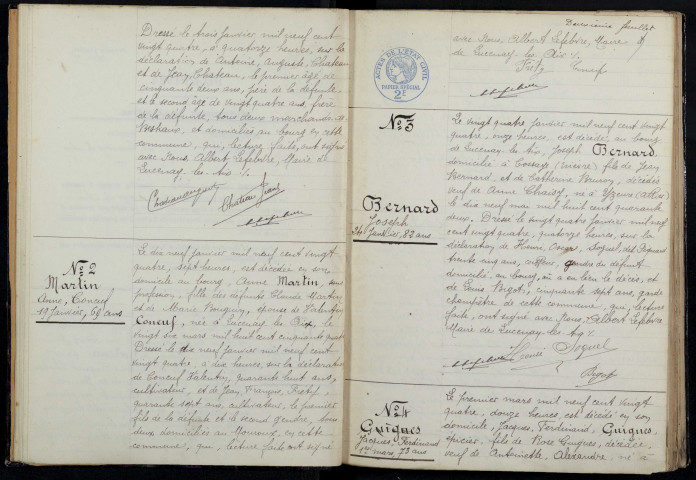 Dressé le trois janvier mil neuf cent
vingt quatre, à quatorze heures, sur la
déclaration de Antoine, Auguste, Chateau
et de Jean Chateau, le premier âgé de
cinquante deux ans, père de la défunte,
et le second âgé de vingt quatre ans, frère
de la défunte, tous deux marchands de
Bestiaux, et domiciliés au bourg en cette
commune, qui, lecture faite, ont signé
avec Nous Albert Lefebvre, Maire de
Lucenay les Aix
Chateau Jean
No 2
Martin
Anne, Concuf
19 janvier, 69 ans
Le dix neuf janvier mil neuf cent vingt
quatre, sept heures, est décédée en son
domicile au bourg, Anne Martin, sans
profession, fille des défunts Claude Martin
et de Marie épouse de Valentin
Concuf, née à Lucenay les Aix, le
vingt six mars mil huit cent cinquante quatre
Dressé le dix neuf janvier mil neuf cent
vingt quatre, à dix heures, sur la déclaration
de Concuf Valentin, quarante huit ans,
cultivateur, et de Jean, François, Frety,
quarante sept ans, cultivateur, le premier
fils de la défunte et le second gendre, tous
deux domiciliés au en cette
commune, qui, lecture faite ont signé
Deuxième feuillet
avec Nous, Albert Lefebvre, Maire
de Lucenay les Aix
Frety
ACTES DE L'ÉTAT CIVIL
PAPIER SPÉCIAL
2F
No 3
Bernard
Joseph
24 janvier, 82 ans
Le vingt quatre janvier mil neuf cent vingt
quatre, onze heures, est décédé, au bourg
de Lucenay les Aix, Joseph Bernard,
domicilié à Cossaye (Nièvre) fils de Jean
Bernard, et de Catherine décédés
veuf de Anne né à Yzeure (Allier)
le dix neuf mai mil huit cent quarante
deux. Dressé le vingt quatre janvier mil neuf
cent vingt quatre, quatorze heures, sur la
déclaration de Henri, Soquel,
trente cinq ans, gendre du défunt
domicilié au bourg, où a eu lieu le décès, et
de Bigot, cinquante sept ans, garde
champêtre de cette commune, qui, lecture
faite, ont signé avec Nous, Albert Lefebvre
Maire de Lucenay les Aix
Soquel
Bigot
No 4
Guigues
Jacques, Ferdinand
1er mars, 73 ans
Le premier mars mil neuf cent vingt
quatre, douze heures est décédé en son
domicile, Jacques, Ferdinand, Guigues,
épicier, fils de Guigues, décédé,
veuf de Antoinette, Alexandre, né à